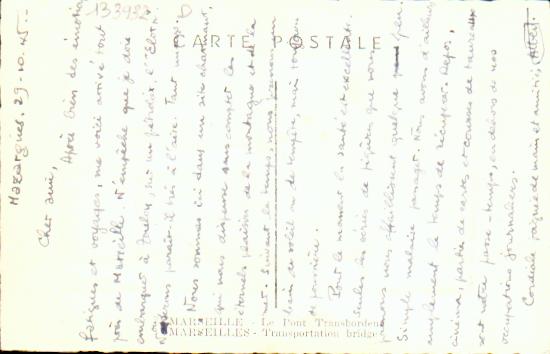 133932 D
CARTE POSTALE
Mazargues, 29-10-45-
Cher ami,
Après bien des émotions
fatigues et voyages, me voici arrivé tout
près de Marseille. N'empêche que je dois
embarquer à
Nous serons paraît-il très à l'aise. Tant mieux.
Nous sommes ici dans un site charmant,
qui nous dispense sans compter les
éternels plaisirs de la montagne et de la
mer. Suivant le temps, nous prenons un
bain de soleil ou de
de poussière.
Pour le moment la santé est excellente.
Seules les séries de piqûres que nous
prenons nous affaiblissent quelque peu
Simple malaise passager. Nous avons d'ailleurs
amplement le temps de récupérer. Repos,
cinéma, parties de cartes et courses de taureaux
sont notre passe-temps, en dehors de nos
occupations journalières.
Cordiale poignée de main et amitiés,
MARSEILLE - Le Pont Transbordeur
MARSEILLES - Transportation bridge